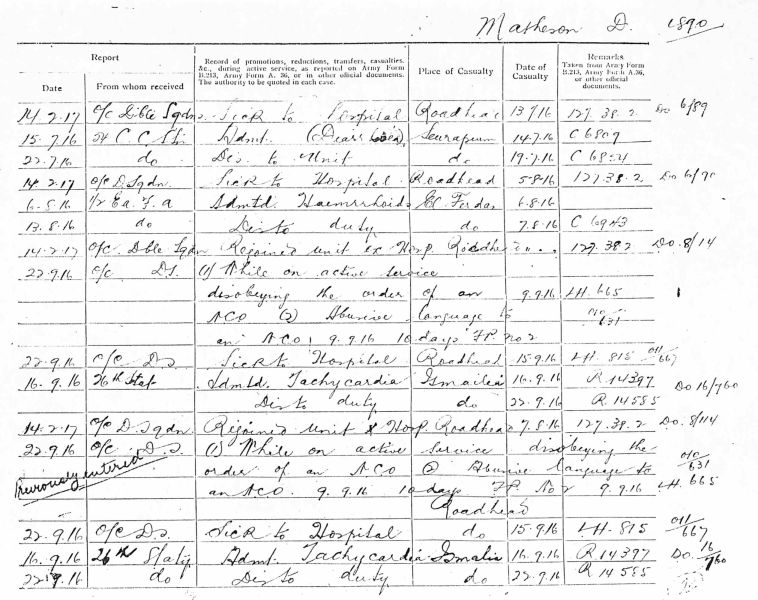 Matheson D. 1890
Report
Record of promotions, reductions, transfers, casualties,
&c., during active service, as reported on Army Form
B.213, Army Form A. 36, or in other official documents.
The authority to be quoted in each case.
Place of Casualty
Date of
Casualty
Remarks
Taken from Army Form
B.213, Army Form A.36,
or other official
documents.
Date From whom received
14.2.17 O/C Dble Sqdn. Sick to Hospital Roadhead 13.7.16 127.38.2 Do 6/89
15.7.16 C C Admt. Serapeum 14.7.16 C 6809
22.7.16 do Dis. to Unit do 19.7.16
14.2.17 O/C D. Sqdn. Sick to Hospital Roadhead 5.8.16 127.38.2 Do 6/90
6.8.16 F. a Admtd Haemrrhoids El Ferdan 6.8.16
13.8.16 do Dis to duty do 7.8.16 C 6943
14.2.17 O/C. Dble Sqdn Rejoined unit ex Hosp Roadhead 127.382 Do. 8/114
22.9.16 O/C Ds. (1) While on active service
disobeying the order of an 9.9.16 LH. 665
NCO (2) Abusive language to 010/631
an NCO, 9.9.16 10 days FP. No 2
22.9.16 O/C Ds Sick to Hospital Roadhead 15.9.16 LH. 815 011/667
16.9.16 26th Stat Admtd. Tachycardia Ismailia 16.9.16 R.14397 Do 16/760
Dis to duty do 22.9.16 R.14585
14.2.17 O/C D. Sqdn. Rejoined Unit x Hosp. Roadhead 7.8.16 127.38.2 Do. 8/114
22.9.16 O/C. Ds. (1) While on active service disobeying the 010/631
Previously entered order of an NCO (2) Abusive language to
an NCO. 9.9.16 10 days FP. No 2 9.9.16 LH. 665
Roadhead
22.9.16 O/C Ds. Sick to Hospital do 15.9.16 LH. 815 011/667
16.9.16 26th Admt. Tachycardia Ismailia 16.9.16 R 14397 Do. 16/760
22.9.16 do Dis to duty do 22.9.16 R 14585